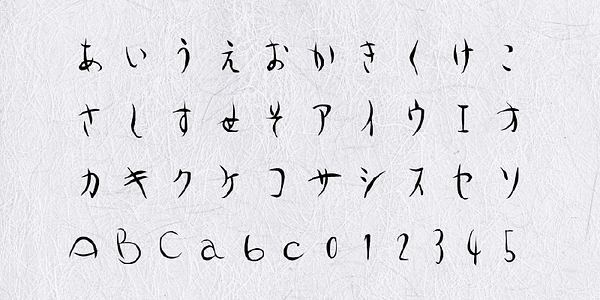 あいうえおかきくけこ
さしすせそアイウエオ
カキクケコサシスセソ
ABCabc012345